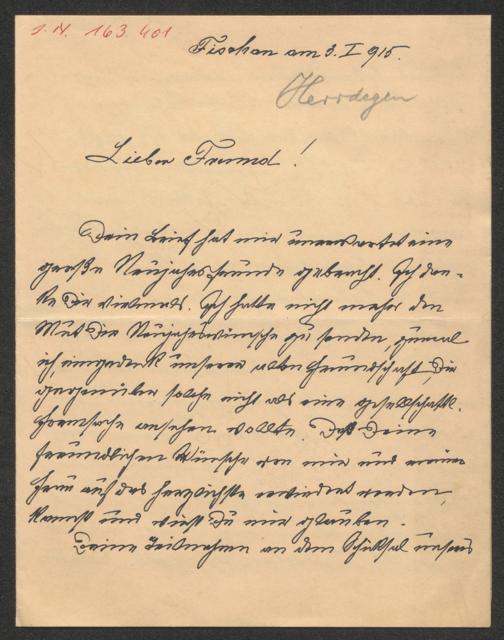 J. N. 163.401
Fischau am 3. I 915.
Herrdegen
Lieber Freund!
Dein Brief hat mir unerwartet eine
große Neujahrsfreude gebracht. Ich dan-
ke Dir vielmals. Ich hatte nicht mehr den
Mut Dir Neujahrswünsche zu senden, zumal
ich, eingedenk unserer alten Freundschaft, Dir
gegenüber solche nicht als eine gesellschaftl.
Formsache ansehen wollte. Daß Deine
freundlichen Wünsche von mir und meiner
Frau auf das herzlichste erwiedert werden,
kannst und wirst Du mir glauben.
Deine Teilnahme an dem Schicksal unseres